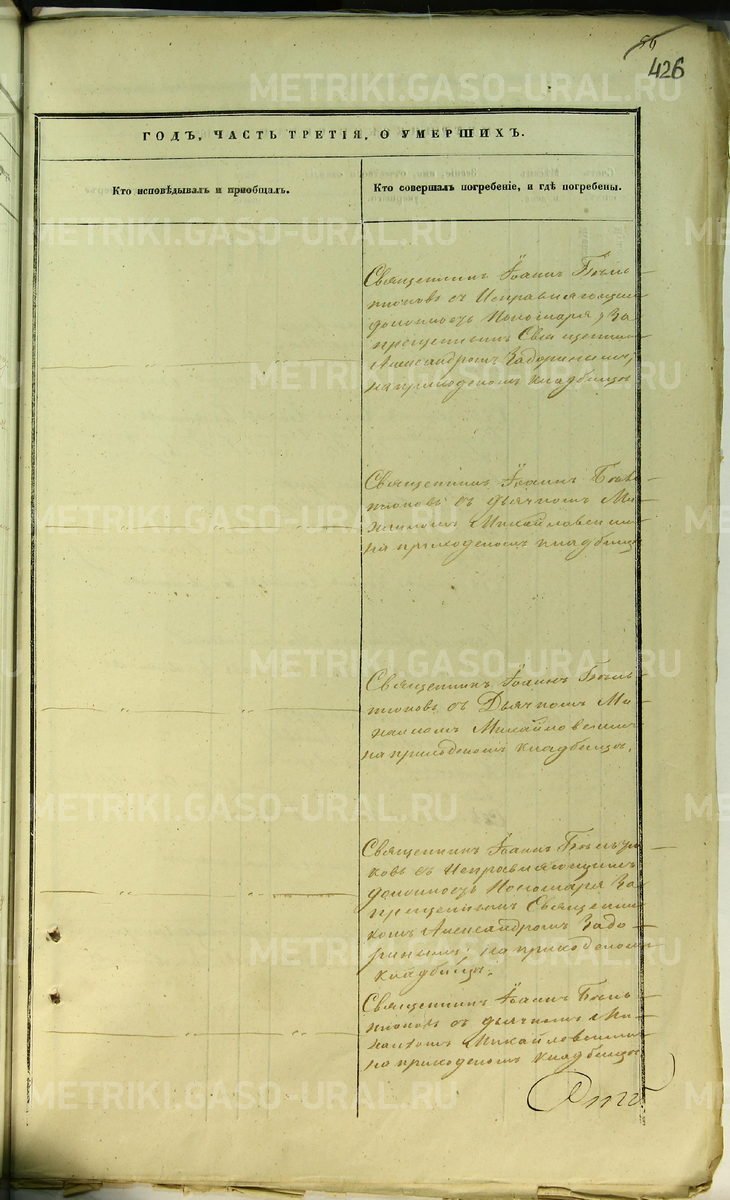 56
426
ГОДЪ, ЧАСТЬ ТРЕТІЯ, О УМЕРШИХЪ.
Кто исповѣдывалъ и пріобщалъ.
Кто совершалъ погребеніе, и гдѣ погребены.
Священникъ Іоаннъ
съ Исправляющимъ
должность Пономаря За-
прещеннымъ Священникомъ
Александромъ Задоринымъ,
на приходскомъ кладбищѣ
Священникъ Іоаннъ
съ дьячкомъ Ми-
хаиломъ Михайловскимъ
на приходскомъ кладбищѣ
Священникъ Іоаннъ
съ Дьячкомъ Ми-
хаиломъ Михайловскимъ
на приходскомъ кладбищѣ.
Священникъ Іоаннъ
ковъ съ Исправляющимъ
должность Пономаря За-
прещеннымъ Священни-
комъ Александромъ Задо-
ринымъ, на приходскомъ
кладбищѣ.
Священникъ Іоаннъ
съ дьячкомъ Ми-
хаиломъ Михайловскимъ
на приходскомъ кладбищѣ
METRIKI.GASO-URAL.RU